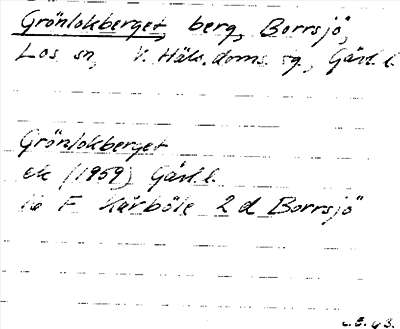 Grönlokberget, berg, Borrsjö,
Los sn, V. Häls. doms. sg., Gävl. l.
Grönlokberget
ek (1959) Gävl. l.
16 F Kårböle 2 d Borrsjö